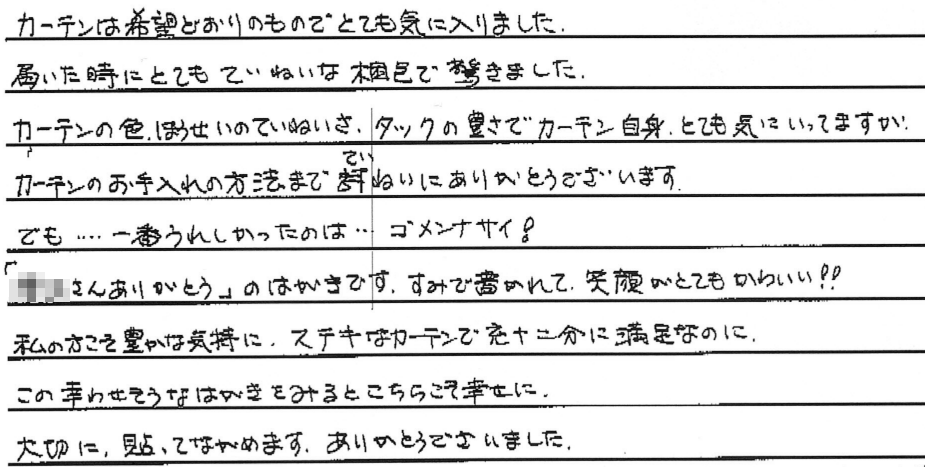 カーテンは希望どおりのものでとても気に入りました.
届いた時にとてもていねいな梱包で驚きました.
カーテンの色.ほうせいのていねいさ.タックの豊さでカーテン自身.とても気にいってますが.
てい
カーテンのお手入れの方法まで ねいにありがとうございます.
でも…一番うれしかったのは…ゴメンナサイ!
「 さんありがとう」のはがきです.すみで書かれて.笑顔がとてもかわいい!!
私の方こそ豊かな気持に.ステキなカーテンで充十二分に満足なのに.
この幸わせそうなはがきをみるとこちらこそ幸せに.
大切に.貼ってながめます.ありがとうございました.